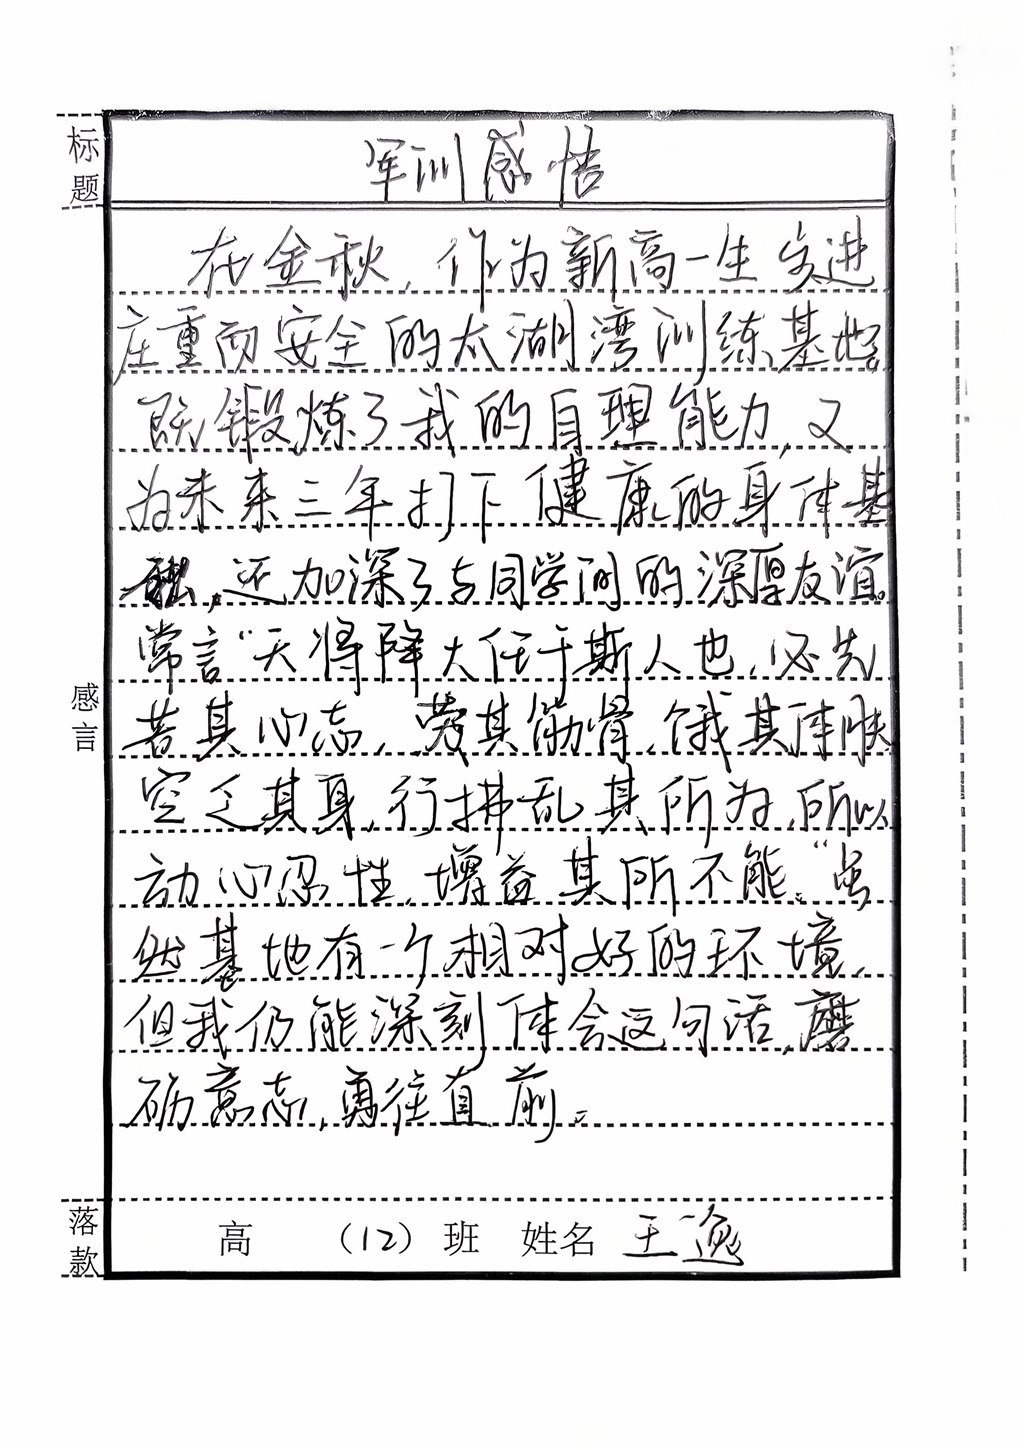 标题
军训感悟
在金秋，作为新高一生步进
庄重而安全的太湖湾训练基地。
既锻炼了我的自理能力，又
为未来三年打下健康的身体基
础，还加深了与同学间的深厚友谊。
常言“天将降大任于斯人也，必先
苦其心志，劳其筋骨，饿其体肤
空乏其身，行拂乱其所为，所以
动心忍性，增益其所不能。”虽
然基地有一个相对好的环境，
但我仍能深刻体会这句话，磨
砺意志，勇往直前。
感言
落款
高 （12）班 姓名 王逸